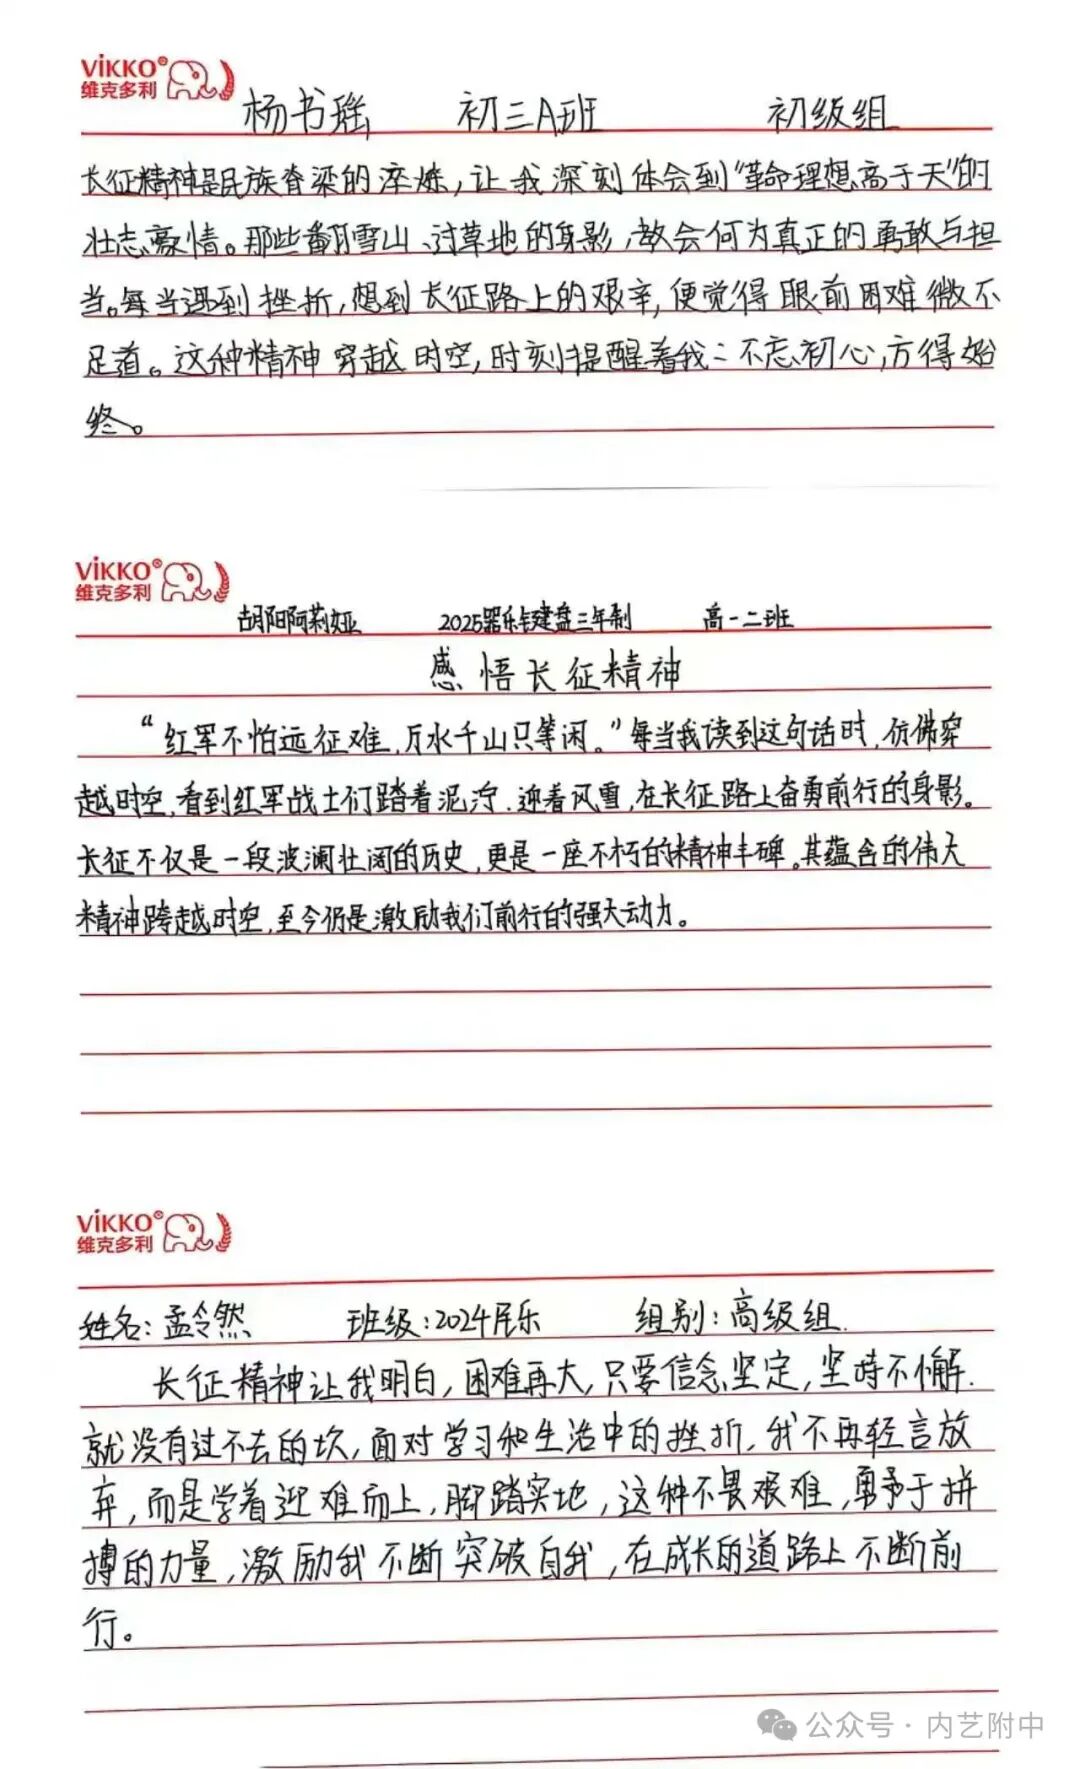 VIKKO®
维克多利
杨书瑶 初三A班 初级组
长征精神是民族脊梁的淬炼，让我深刻体会到“革命理想高于天”的
壮志豪情。那些翻雪山、过草地的身影，教会何为真正的勇敢与担
当。每当遇到挫折，想到长征路上的艰辛，便觉得眼前困难微不
足道。这种精神穿越时空，时刻提醒着我：不忘初心，方得始
终。
VIKKO®
维克多利
胡阳阿莉娅 2025器乐键盘三年制 高一二班
感悟长征精神
“红军不怕远征难，万水千山只等闲。”每当我读到这句话时，仿佛穿
越时空，看到红军战士们踏着泥泞、迎着风雪，在长征路上奋勇前行的身影。
长征不仅是一段波澜壮阔的历史，更是一座不朽的精神丰碑。其蕴含的伟大
精神跨越时空，至今仍是激励我们前行的强大动力。
VIKKO®
维克多利
姓名：孟令然 班级：2024民乐 组别：高级组
长征精神让我明白，困难再大，只要信念坚定，坚持不懈．
就没有过不去的坎，面对学习和生活中的挫折，我不再轻言放
弃，而是学着迎难而上，脚踏实地，这种不畏艰难，勇于拼
搏的力量，激励我不断突破自我，在成长的道路上不断前
行。
公众号·内艺附中